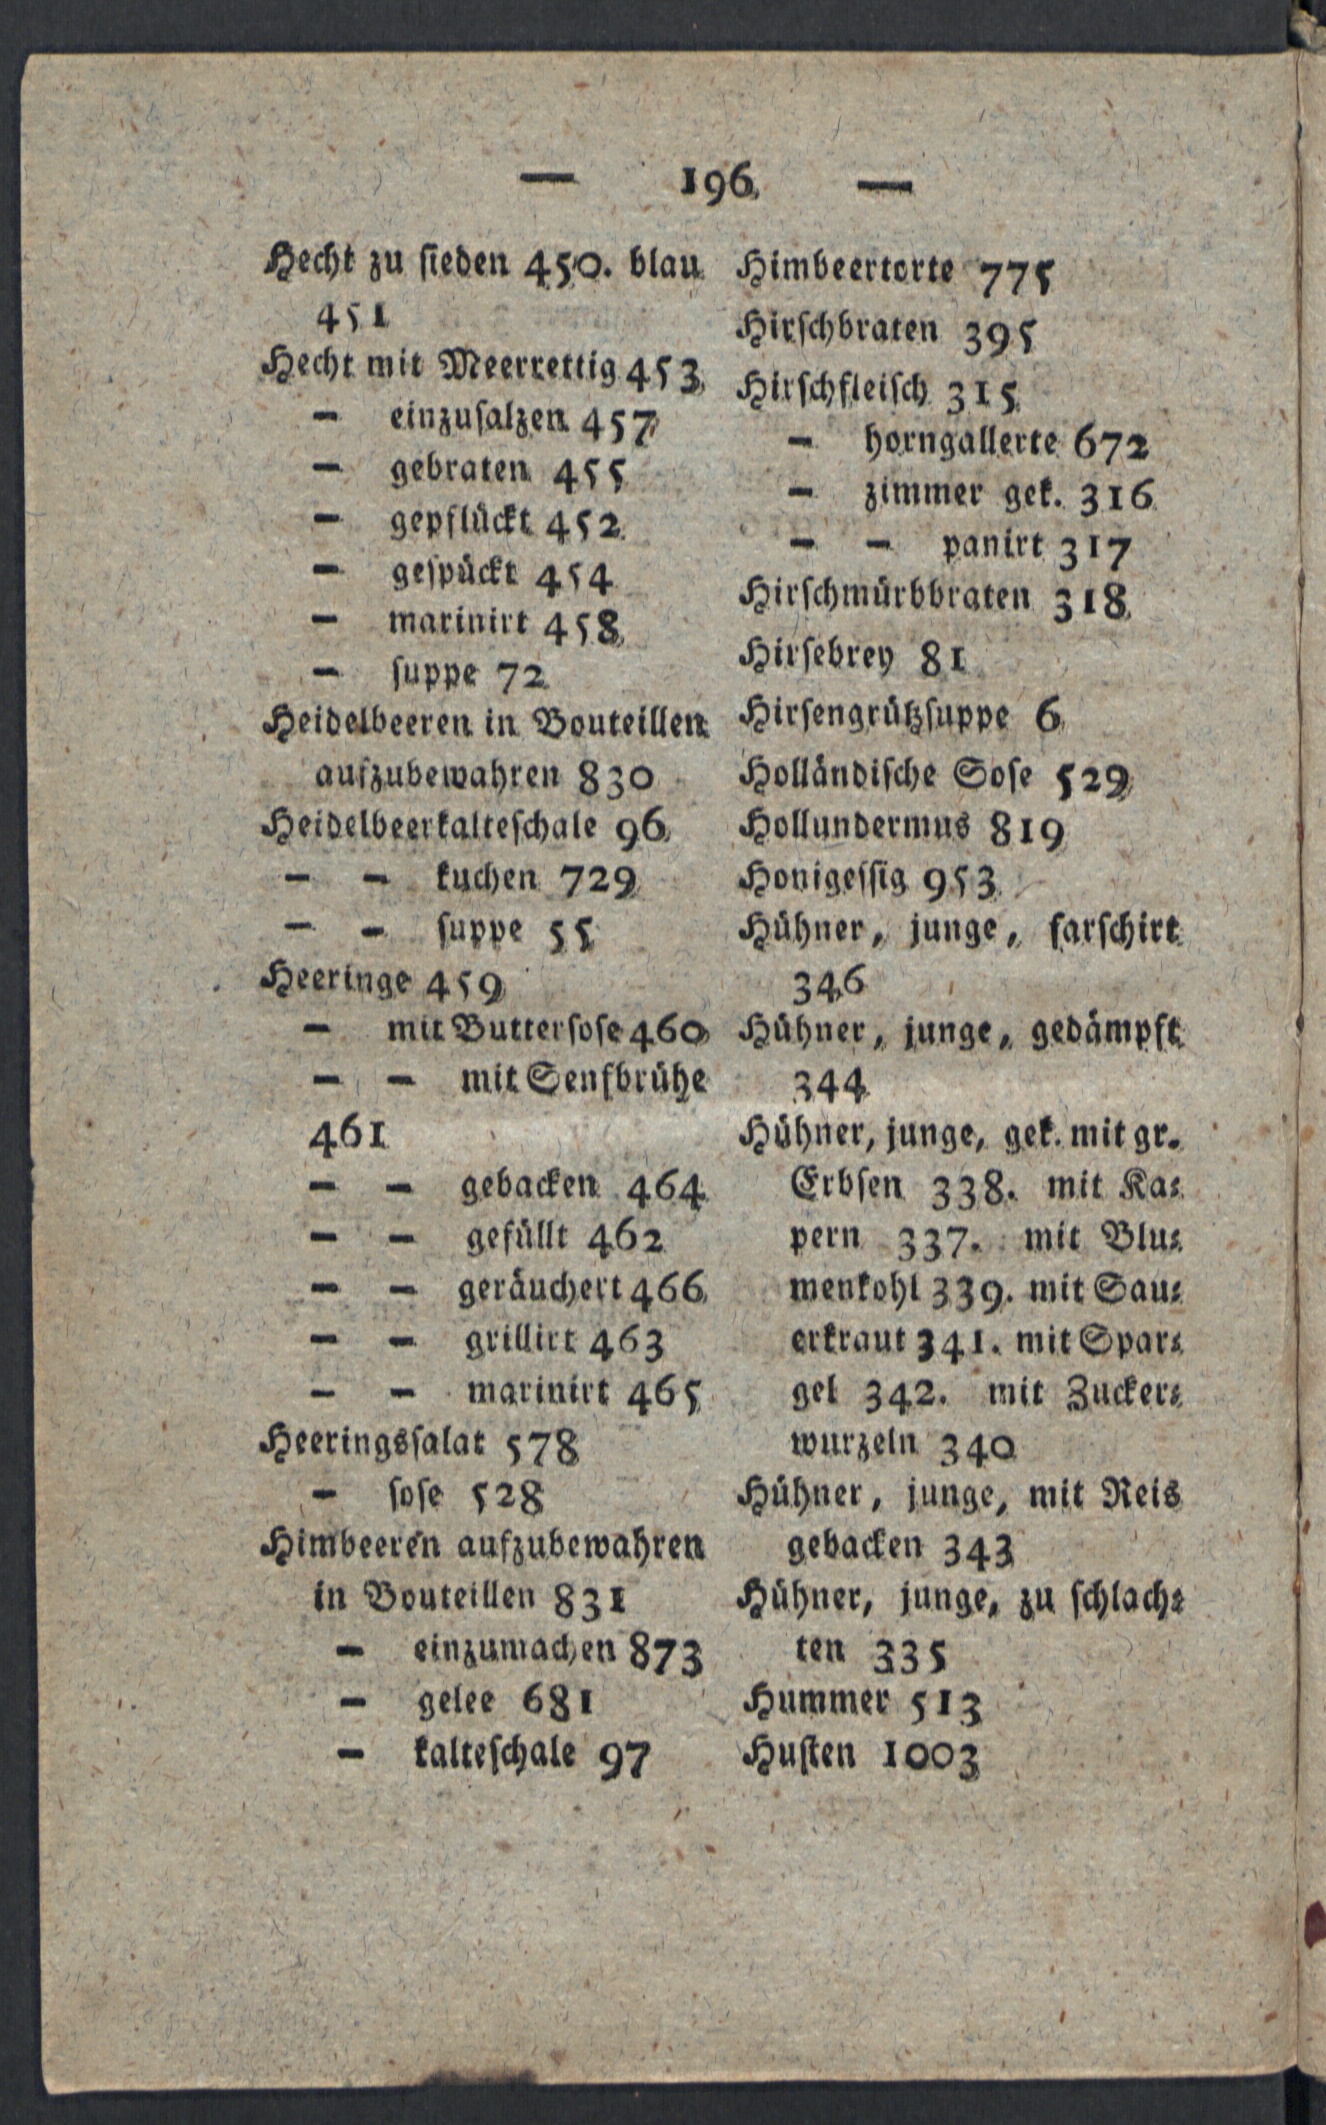 — 196 —
Hecht zu sieden 450. blau
451
Hecht mit Meerrettig 453
- einzusalzen 457
- gebraten 455
- gepflückt 452
- gespückt 454
- marinirt 458
- suppe 72
Heidelbeeren in Bouteillen
aufzubewahren 830
Heidelbeerkalteschale 96
- - kuchen 729
- - suppe 55
Heeringe 459
- mit Buttersose 460
- - mit Senfbrühe
461
- - gebacken 464
- - gefüllt 462
- - geräuchert 466
- - grillirt 463
- - marinirt 465
Heeringssalat 578
- sose 528
Himbeeren aufzubewahren
in Bouteillen 831
- einzumachen 873
- gelee 681
- kalteschale 97
Himbeertorte 775
Hirschbraten 395
Hirschfleisch 315
- horngallerte 672
- zimmer gek. 316
- - panirt 317
Hirschmürbbraten 318
Hirsebrey 81
Hirsengrützsuppe 6
Holländische Sose 529
Hollundermus 819
Honigessig 953
Hühner, junge, farschirt
346
Hühner, junge, gedämpft
344
Hühner, junge, gek. mit gr.
Erbsen 338. mit Ka⸗
pern 337. mit Blu⸗
menkohl 339. mit Sau⸗
erkraut 341. mit Spar⸗
gel 342. mit Zucker⸗
wurzeln 340
Hühner, junge, mit Reis
gebacken 343
Hühner, junge, zu schlach⸗
ten 335
Hummer 513
Husten 1003